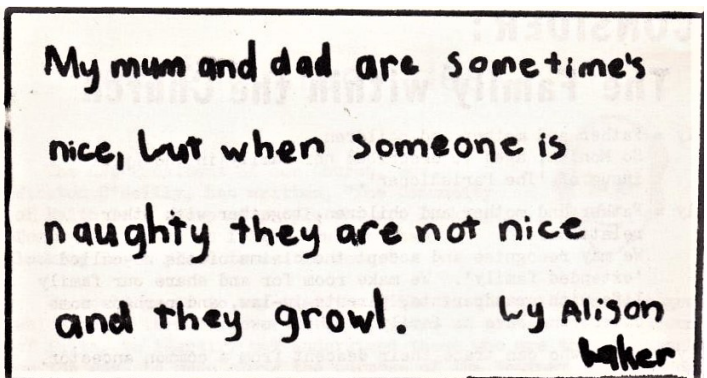 My mum and dad are sometime's
nice, but when someone is
naughty they are not nice
and they growl. by Alison
baker